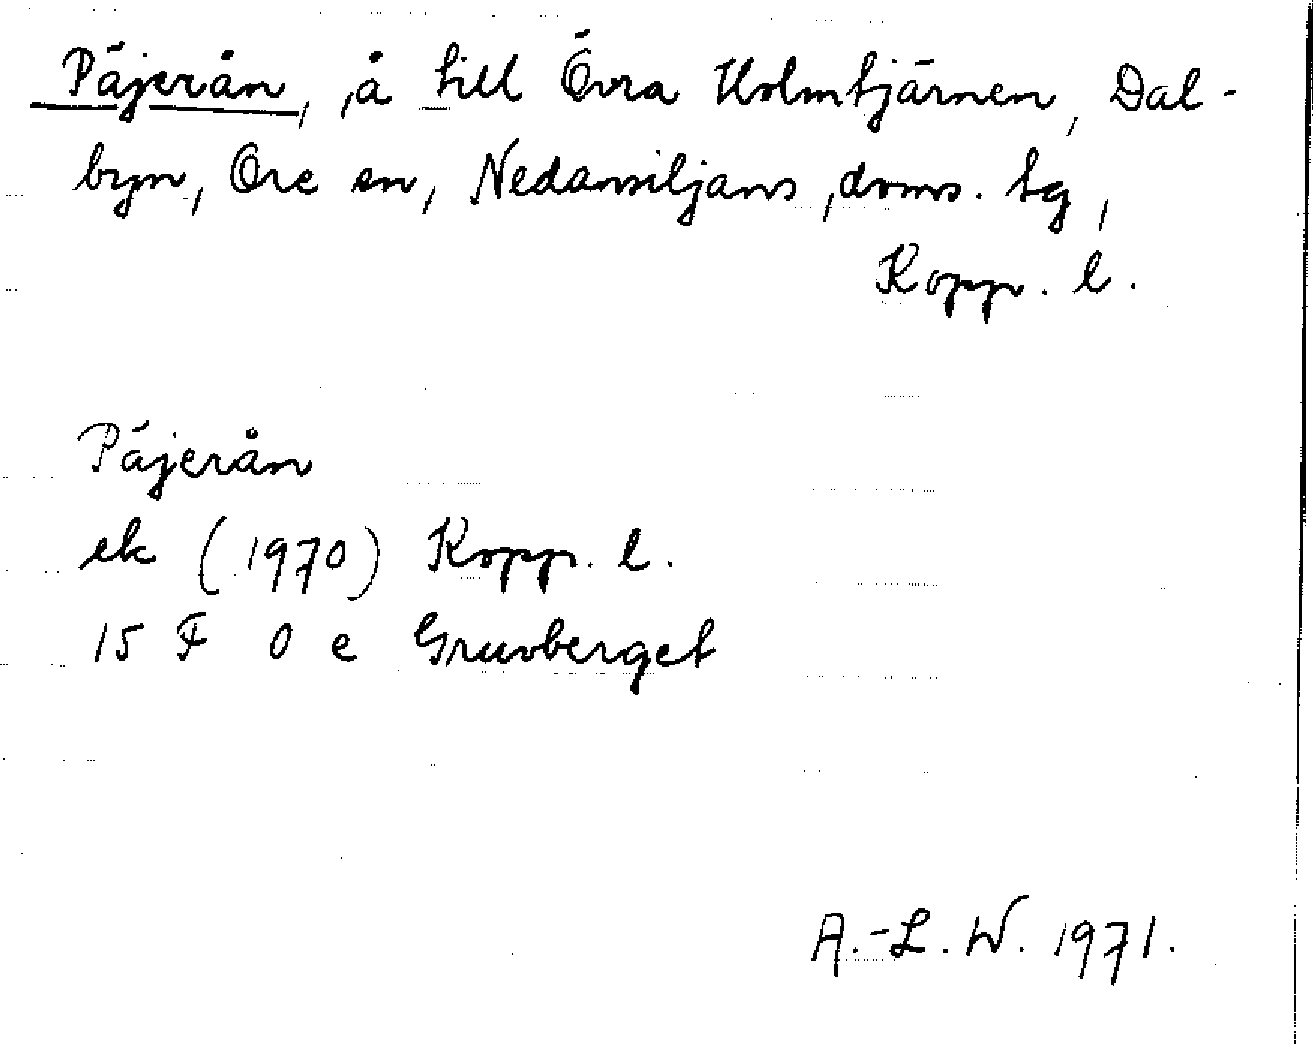 Päjerån, å till Övra Holmtjärnen, Dal-
byn, Ore sn, Nedansiljans doms. tg,
Kopp. l.
Päjerån
ek (1970) Kopp. l.
15 F 0 e Gruvberget
A.-L. W. 1971.